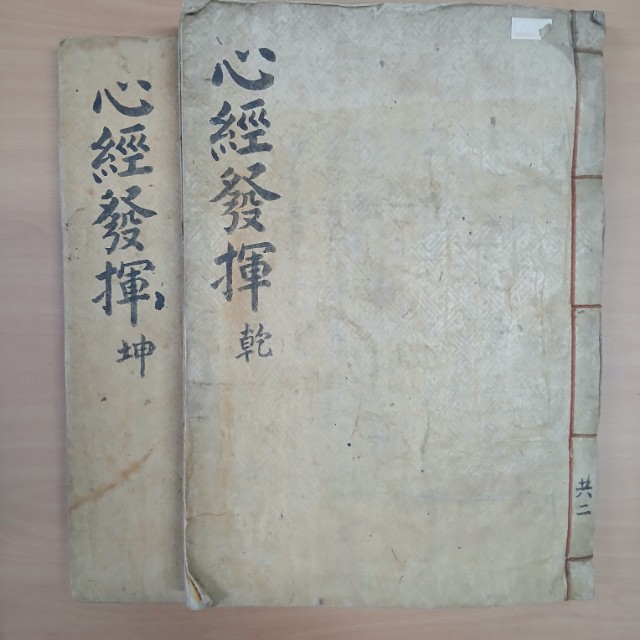 心經發揮 乾
共二
心經發揮 坤